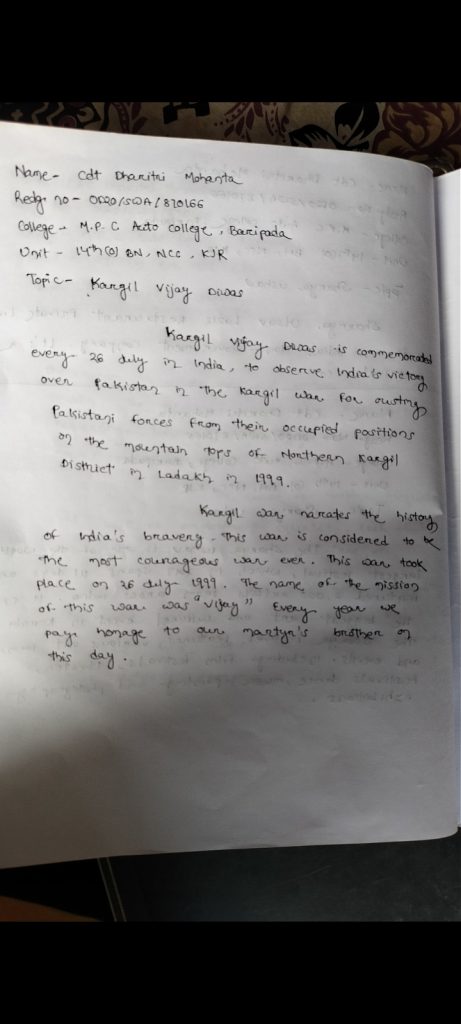 Name - Cdt Dharitri Mohanta
Redg. no - OD20/SWA/810166
College - M.P.C Auto college, Baripada
Unit - 14th (O) BN, NCC, KJR
Topic - Kargil Vijay Diwas
Kargil Vijay Diwas is commemorated
every 26 July in India, to observe India's victory
over Pakistan in the Kargil war for ousting
Pakistani forces from their occupied positions
on the mountain tops of Northern Kargil
District in Ladakh in 1999.
Kargil war narrates the history
of India's bravery. This war is considered to be
the most courageous war ever. This war took
place on 26 July 1999. The name of the mission
of this war was "Vijay" Every year we
pay homage to our martyr's brother on
this day.